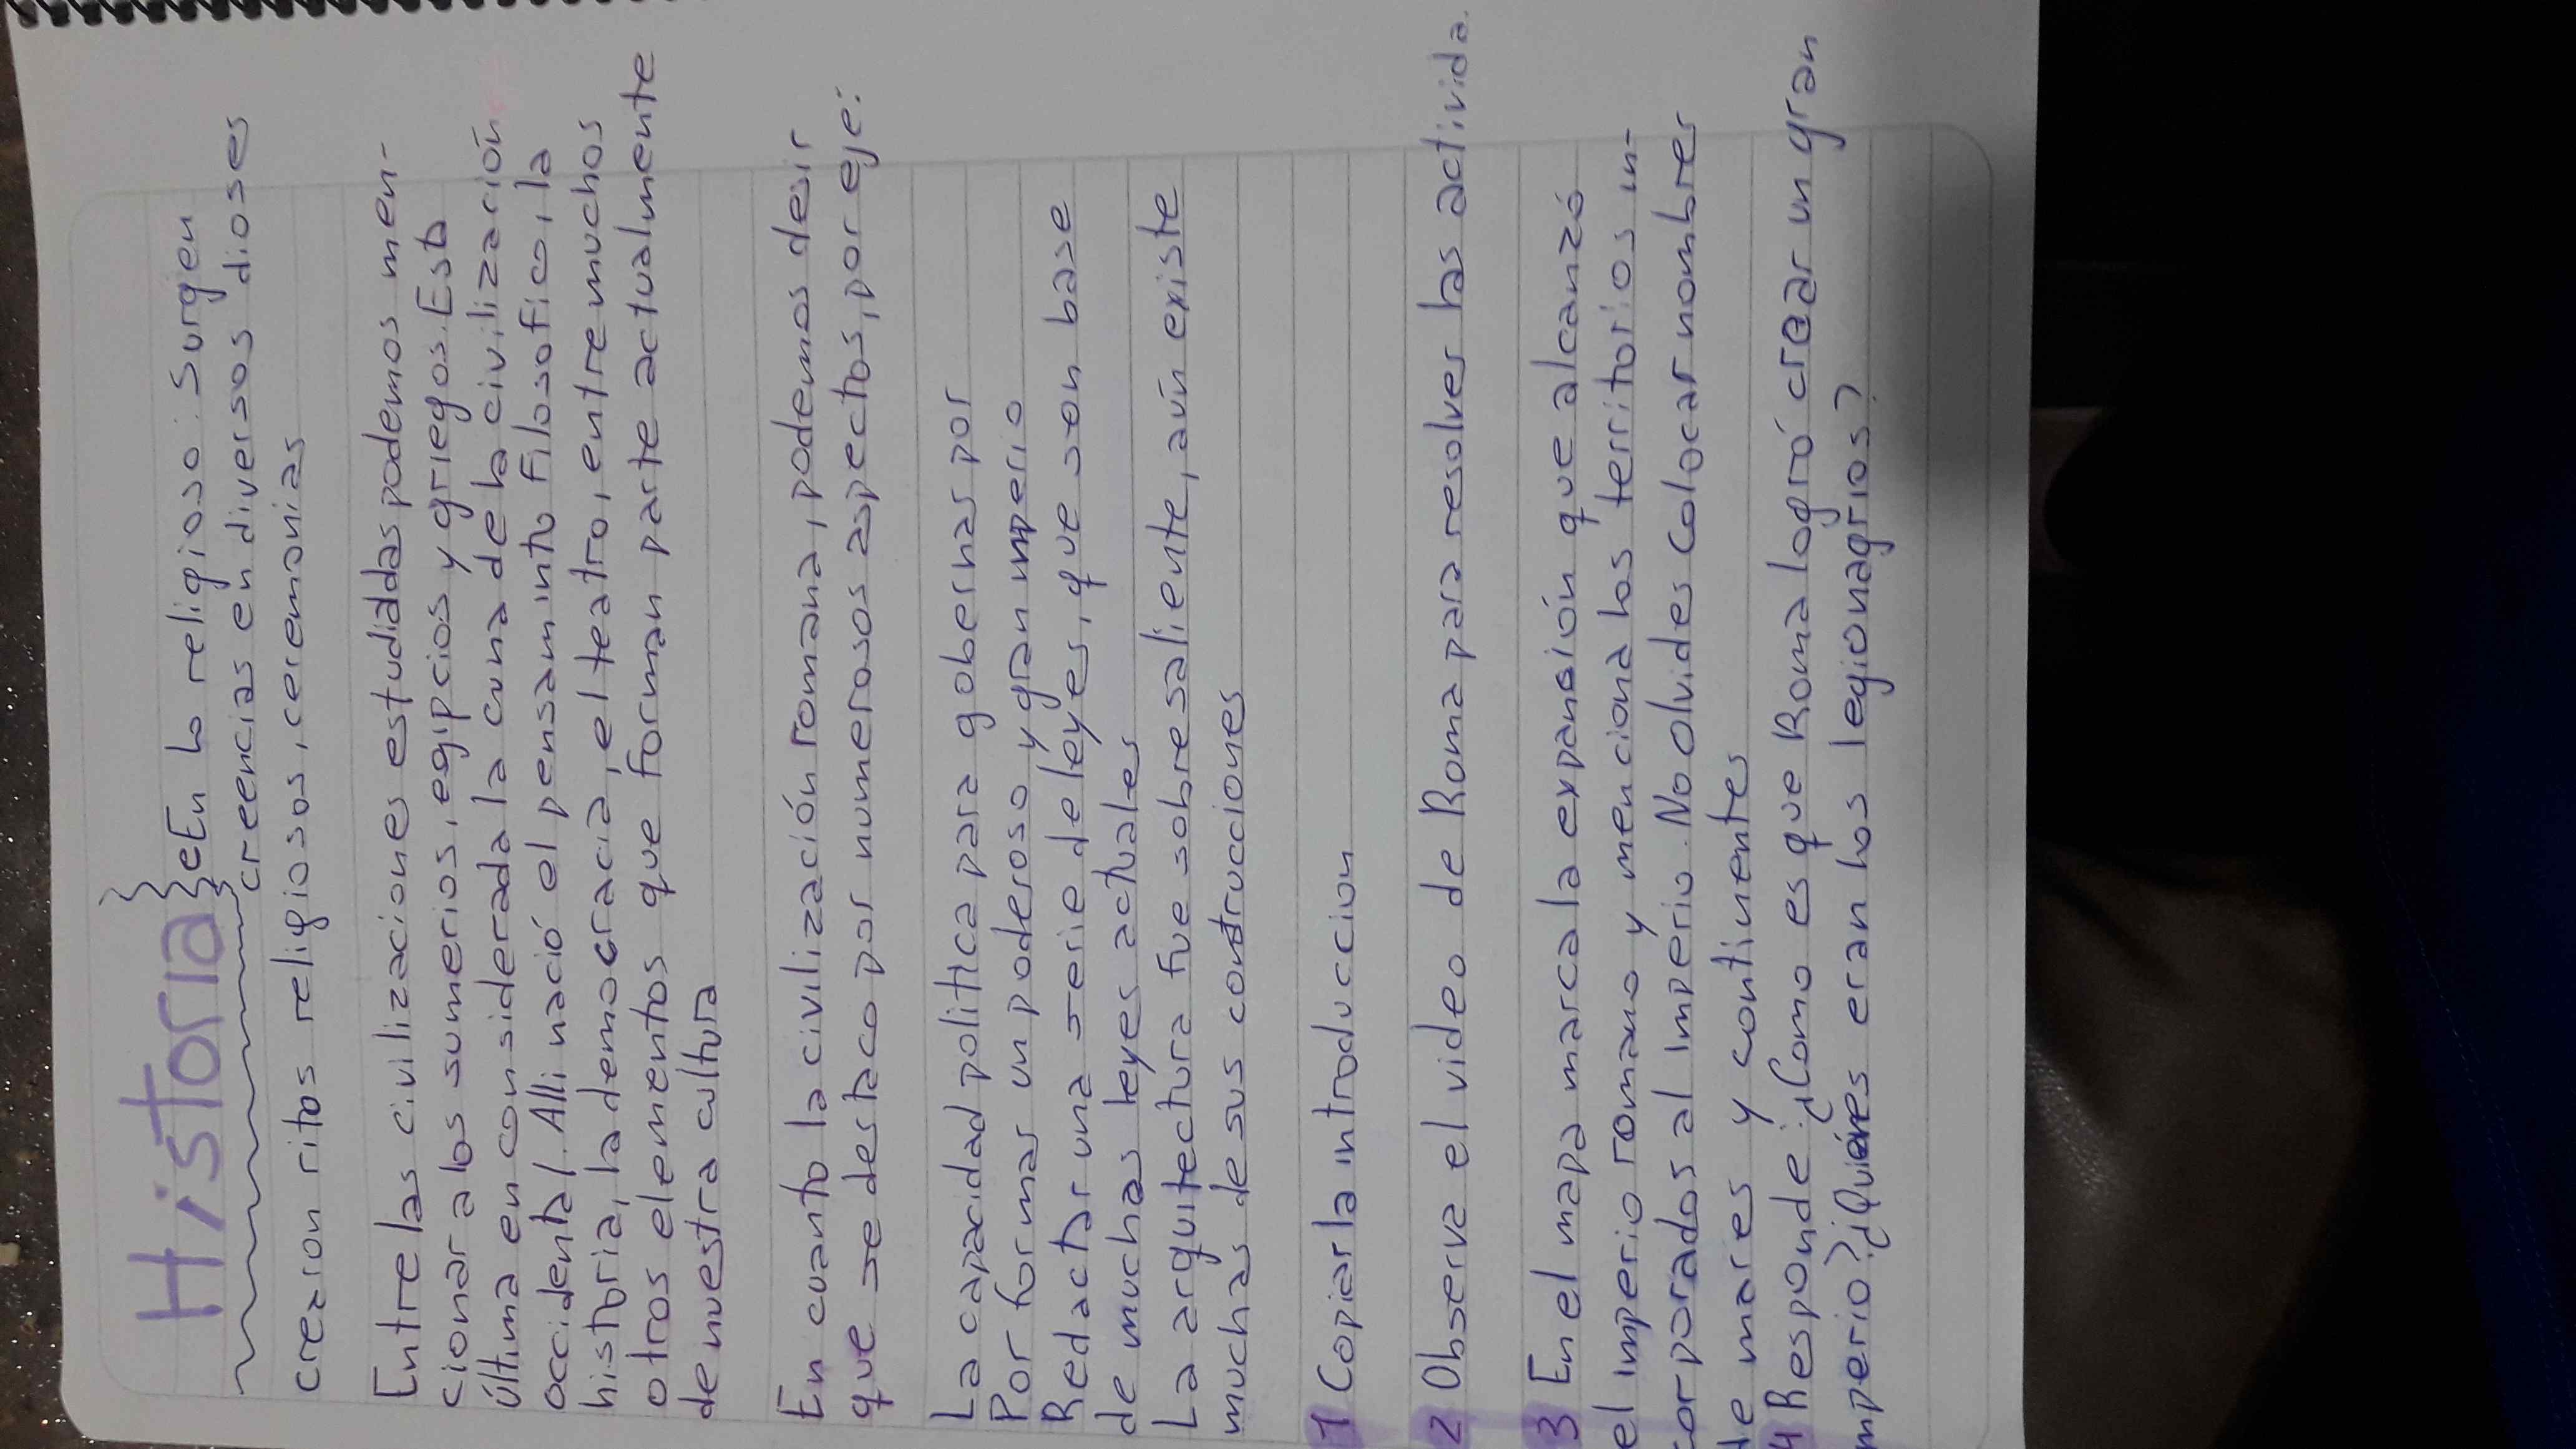 Historia
•En lo religioso: Surgen
creencias en diversos dioses
crearon ritos religiosos, ceremonias
Entre las civilizaciones estudiadas podemos men-
cionar a los sumerios, egipcios y griegos. Est
última en considerada la cuna de la civilización
occidental. Alli nació el pensaminto filosofico, la
historia, la democracia, el teatro, entre muchos
otros elementos que forman parte actualmente
de nuestra cultura
En cuanto la civilización romana, podemos desir
que se destaco por numerosos aspectos, por eje:
La capacidad politica para gobernas por
Por formas un poderoso y gran imperio
Redactar una serie de leyes, que son base
de muchas leyes actuales
La arquitectura fue sobresaliente, aún existe
muchas de sus contrucciones
1 Copiar la introduccion
2 Observa el video de Roma para resolves las activida.
3 En el mapa marca la expansión que alcanzó
el imperio romano y menciona los territorios in-
corporados al imperio. No olvides colocar nombres
de mares y continentes
4 Responde: ¿Como es que Roma logró crear un gran
imperio? ¿Quiénes eran los legionagrios?